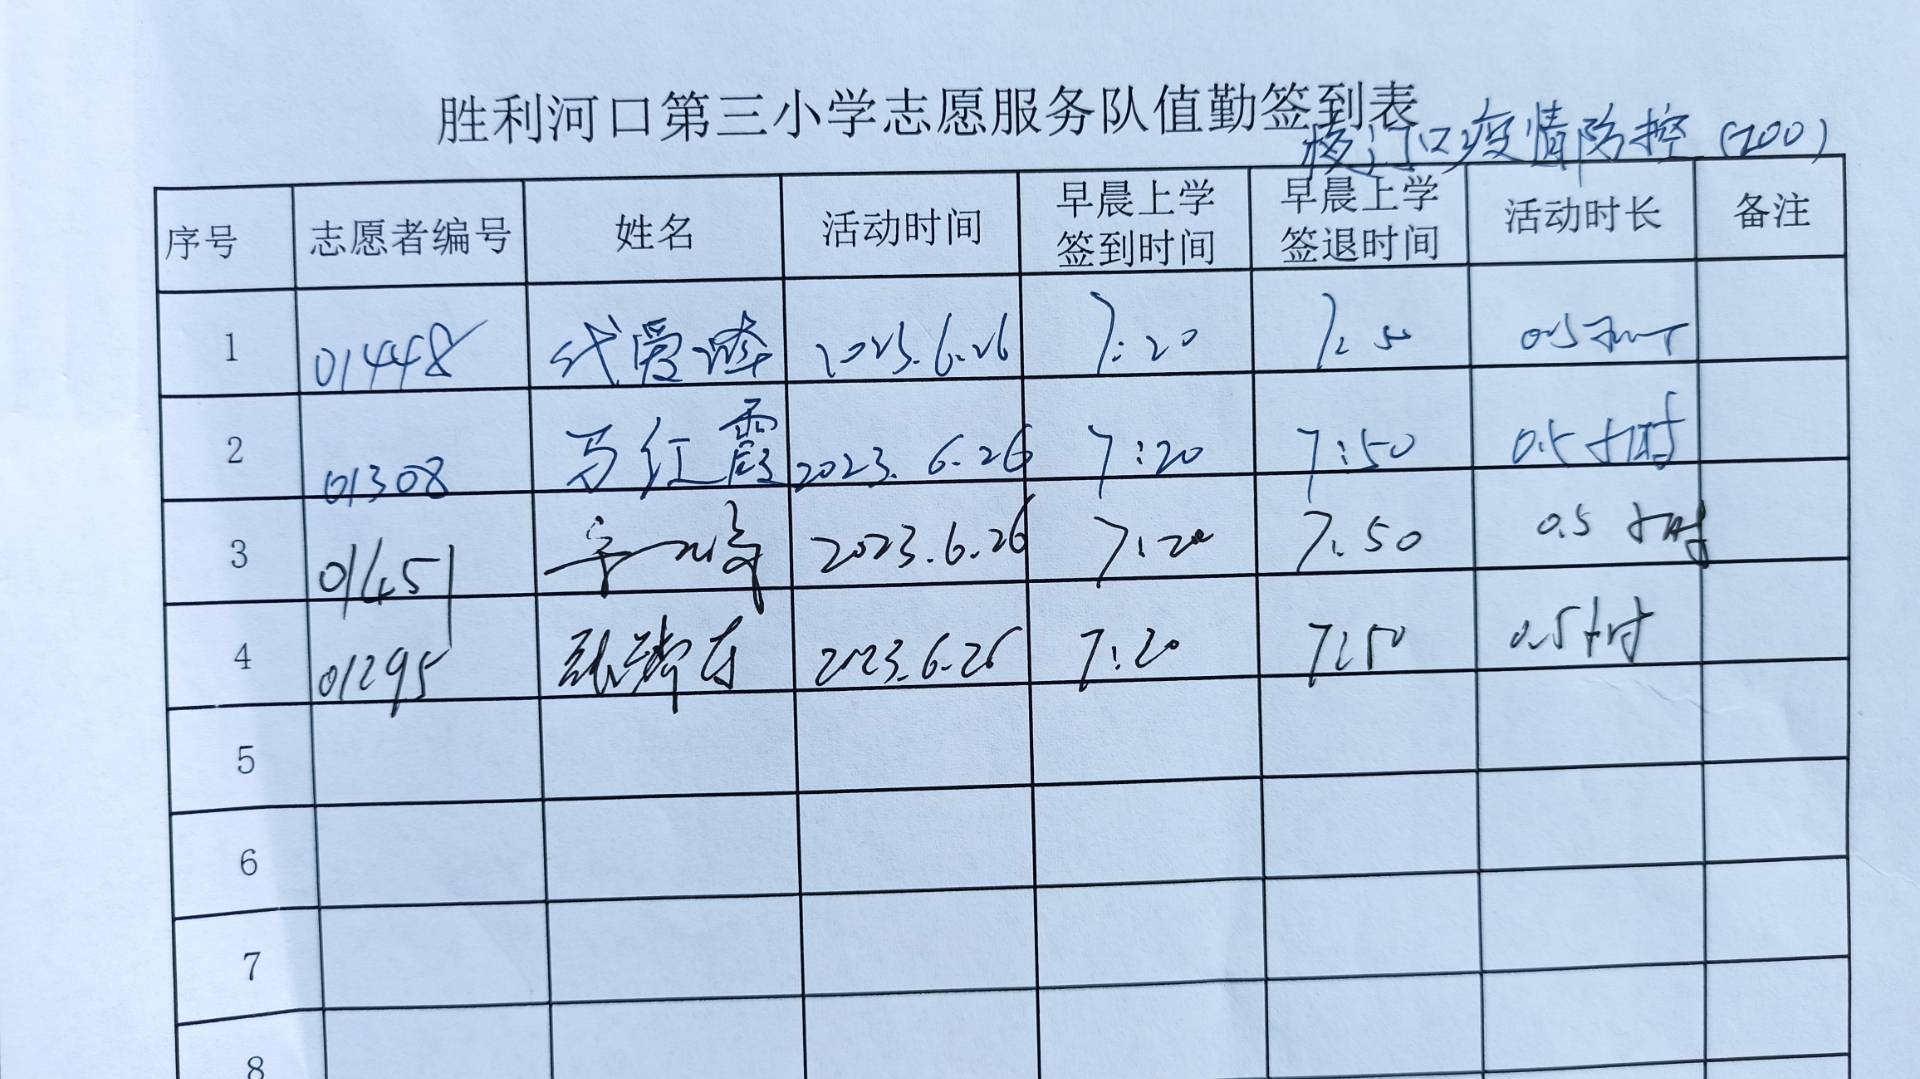 胜利河口第三小学志愿服务队值勤签到表
校门口疫情防控 (200)
序号 志愿者编号 姓名 活动时间 早晨上学签到时间 早晨上学签退时间 活动时长 备注
1 01448 代爱 2023.6.26 7:20 7:50 0.5小时
2 01308 马红霞 2023.6.26 7:20 7:50 0.5小时
3 01451 2023.6.26 7:20 7:50 0.5小时
4 01295 张 2023.6.26 7:20 7:50 0.5小时
5
6
7
8